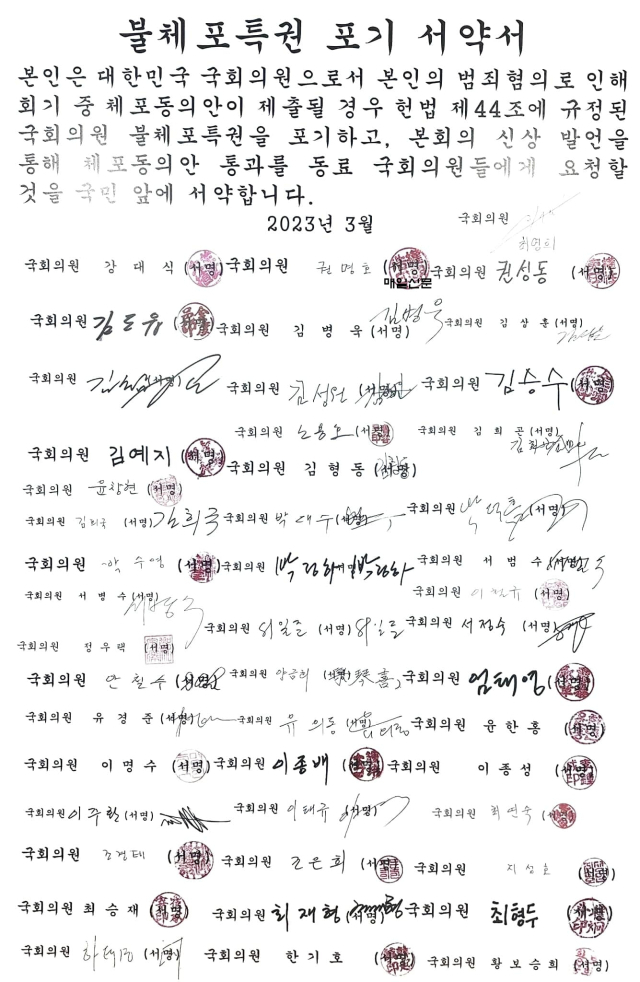 불체포특권 포기 서약서
본인은 대한민국 국회의원으로서 본인의 범죄혐의로 인해
회기 중 체포동의안이 제출될 경우 헌법 제44조에 규정된
국회의원 불체포특권을 포기하고, 본회의 신상 발언을
통해 체포동의안 통과를 동료 국회의원들에게 요청할
것을 국민 앞에 서약합니다.
2023년 3월
국회의원 최영희
국회의원 강대식 (서명) 국회의원 권명호 (서명) 국회의원 권성동 (서명)
매일신문
국회의원 김도읍 (서명) 국회의원 김병욱 (서명) 김병욱 국회의원 김상훈 (서명)
국회의원 (서명) 국회의원 김성원 (서명) 국회의원 김승수 (서명)
국회의원 노용호 (서명) 국회의원 김희곤 (서명)
국회의원 김예지 (서명) 국회의원 김형동 (서명)
국회의원 윤창현 (서명)
국회의원 김희국 (서명) 김희국 국회의원 박대수 (서명) 국회의원 박덕흠 (서명)
국회의원 박수영 (서명) 국회의원 (서명) 국회의원 서범수 (서명)
국회의원 서병수 (서명) 국회의원 (서명)
국회의원 서일준 (서명) 서일준 국회의원 서정숙 (서명)
국회의원 정우택 (서명)
국회의원 안철수 (서명) 국회의원 양금희 (서명) 국회의원 엄태영 (서명)
국회의원 유경준 (서명) 국회의원 유의동 (서명) 국회의원 윤한홍 (서명)
국회의원 이명수 (서명) 국회의원 이종배 (서명) 국회의원 이종성 (서명)
국회의원 이주환 (서명) 국회의원 이태규 (서명) 국회의원 최연숙 (서명)
국회의원 조경태 (서명) 국회의원 조은희 (서명) 국회의원 지성호 (서명)
국회의원 최승재 (서명) 국회의원 최재형 (서명) 국회의원 최형두 (서명)
국회의원 하태경 (서명) 국회의원 한기호 (서명) 국회의원 황보승희 (서명)